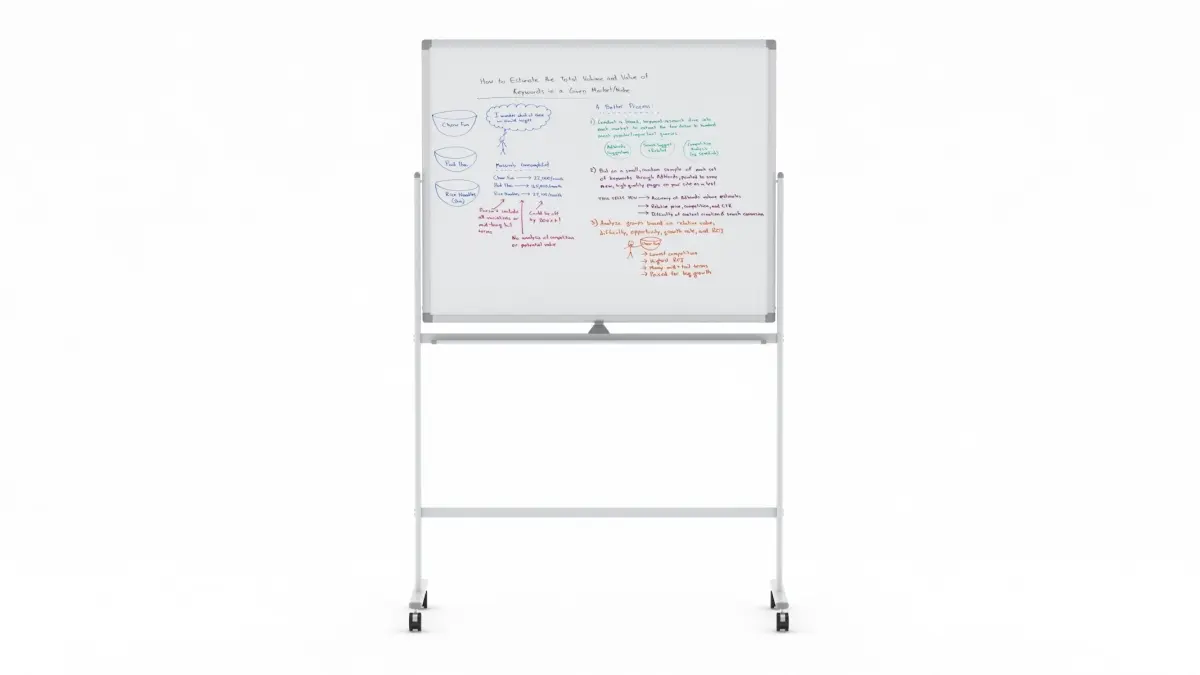 How to Estimate the Total Volume and Value of
Keywords in a Given Market/Niche
Chow Fun
Pad Thai
Rice Noodles
I wonder which of these
we should target
Chow Fun → /month
Pad Thai → /month
Rice Noodles → /month
Doesn't include
all variations or
mid-long tail
terms
Could be off
by 200%+!
No analysis of competition
or potential value
A Better Process:
1) Conduct a broad, keyword-research dive into
each market to extract the few dozen to hundred
most popular/important phrases
AdWords
Suggestions
Google Suggest
+ Related
Competitive
Analysis
2) Bid on a small, random sample of each set
of keywords through AdWords, pointed to some
new, high quality pages on your site as a test
THIS GETS YOU → Accuracy of AdWords volume estimates
→ Relative price, competition, and CTR
→ Difficulty of content creation & search conversion
3) Analyze groups based on relative value,
difficulty, opportunity, growth rate, and ROI
Chow Fun
→ Lowest competition
→ Highest ROI
→ Many mid + tail terms
→ Poised for big growth